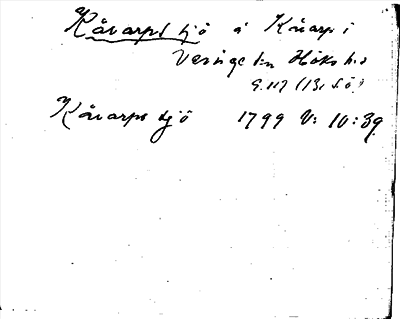 Kåvarps sjö å Kåarp i
Veinge sn Höks hd
G.117 (13, S.Ö.)
Kåvarps sjö 1799 V: 10:39.